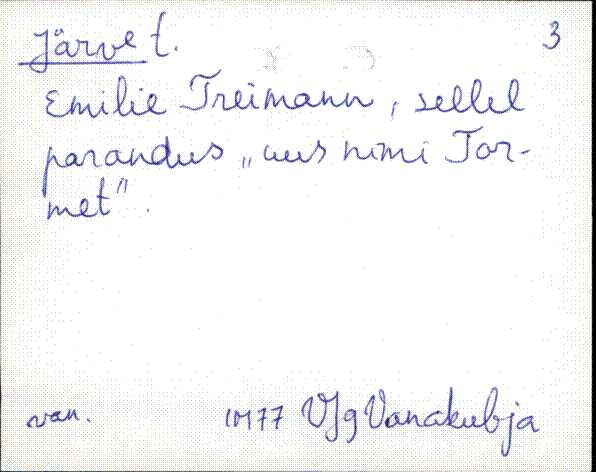 Järve t. 3
Emilie Treimann, sellel
parandus „uus nimi Tor-
met".
van. VJg Vanakubja